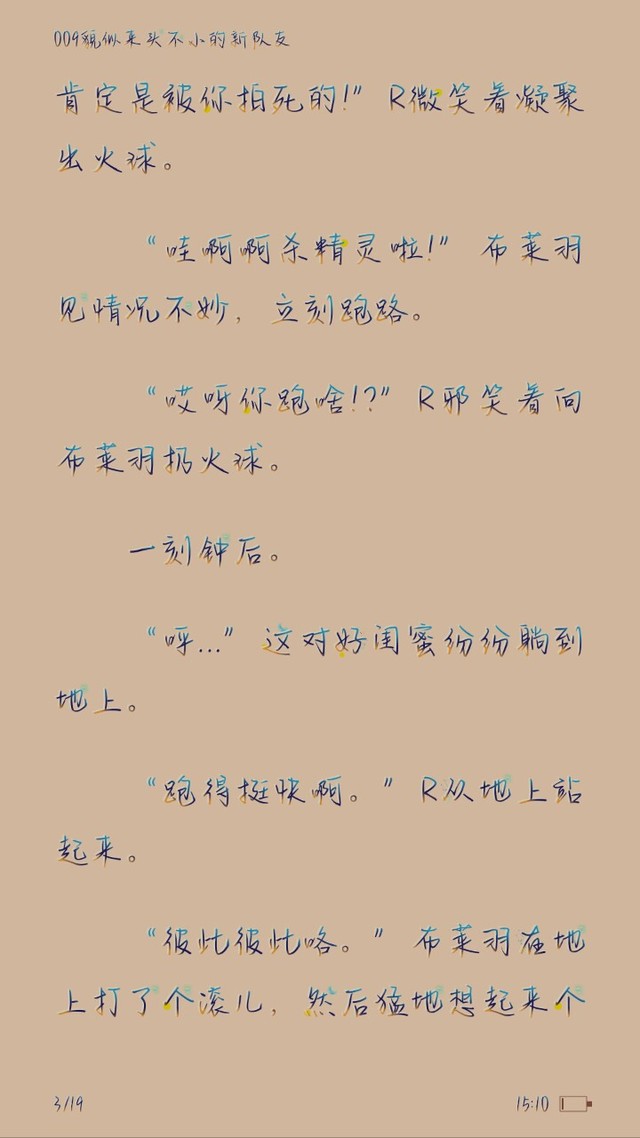 009貌似来头不小的新队友
肯定是被你拍死的!”R微笑着凝聚
出火球。
“哇啊啊杀精灵啦!”布莱羽
见情况不妙，立刻跑路。
“哎呀你跑啥!?”R邪笑着向
布莱羽扔火球。
一刻钟后。
“呼...”这对好闺蜜纷纷躺到
地上。
“跑得挺快啊。”R从地上站
起来。
“彼此彼此咯。”布莱羽在地
上打了个滚儿，然后猛地想起来个
3/19
15:10